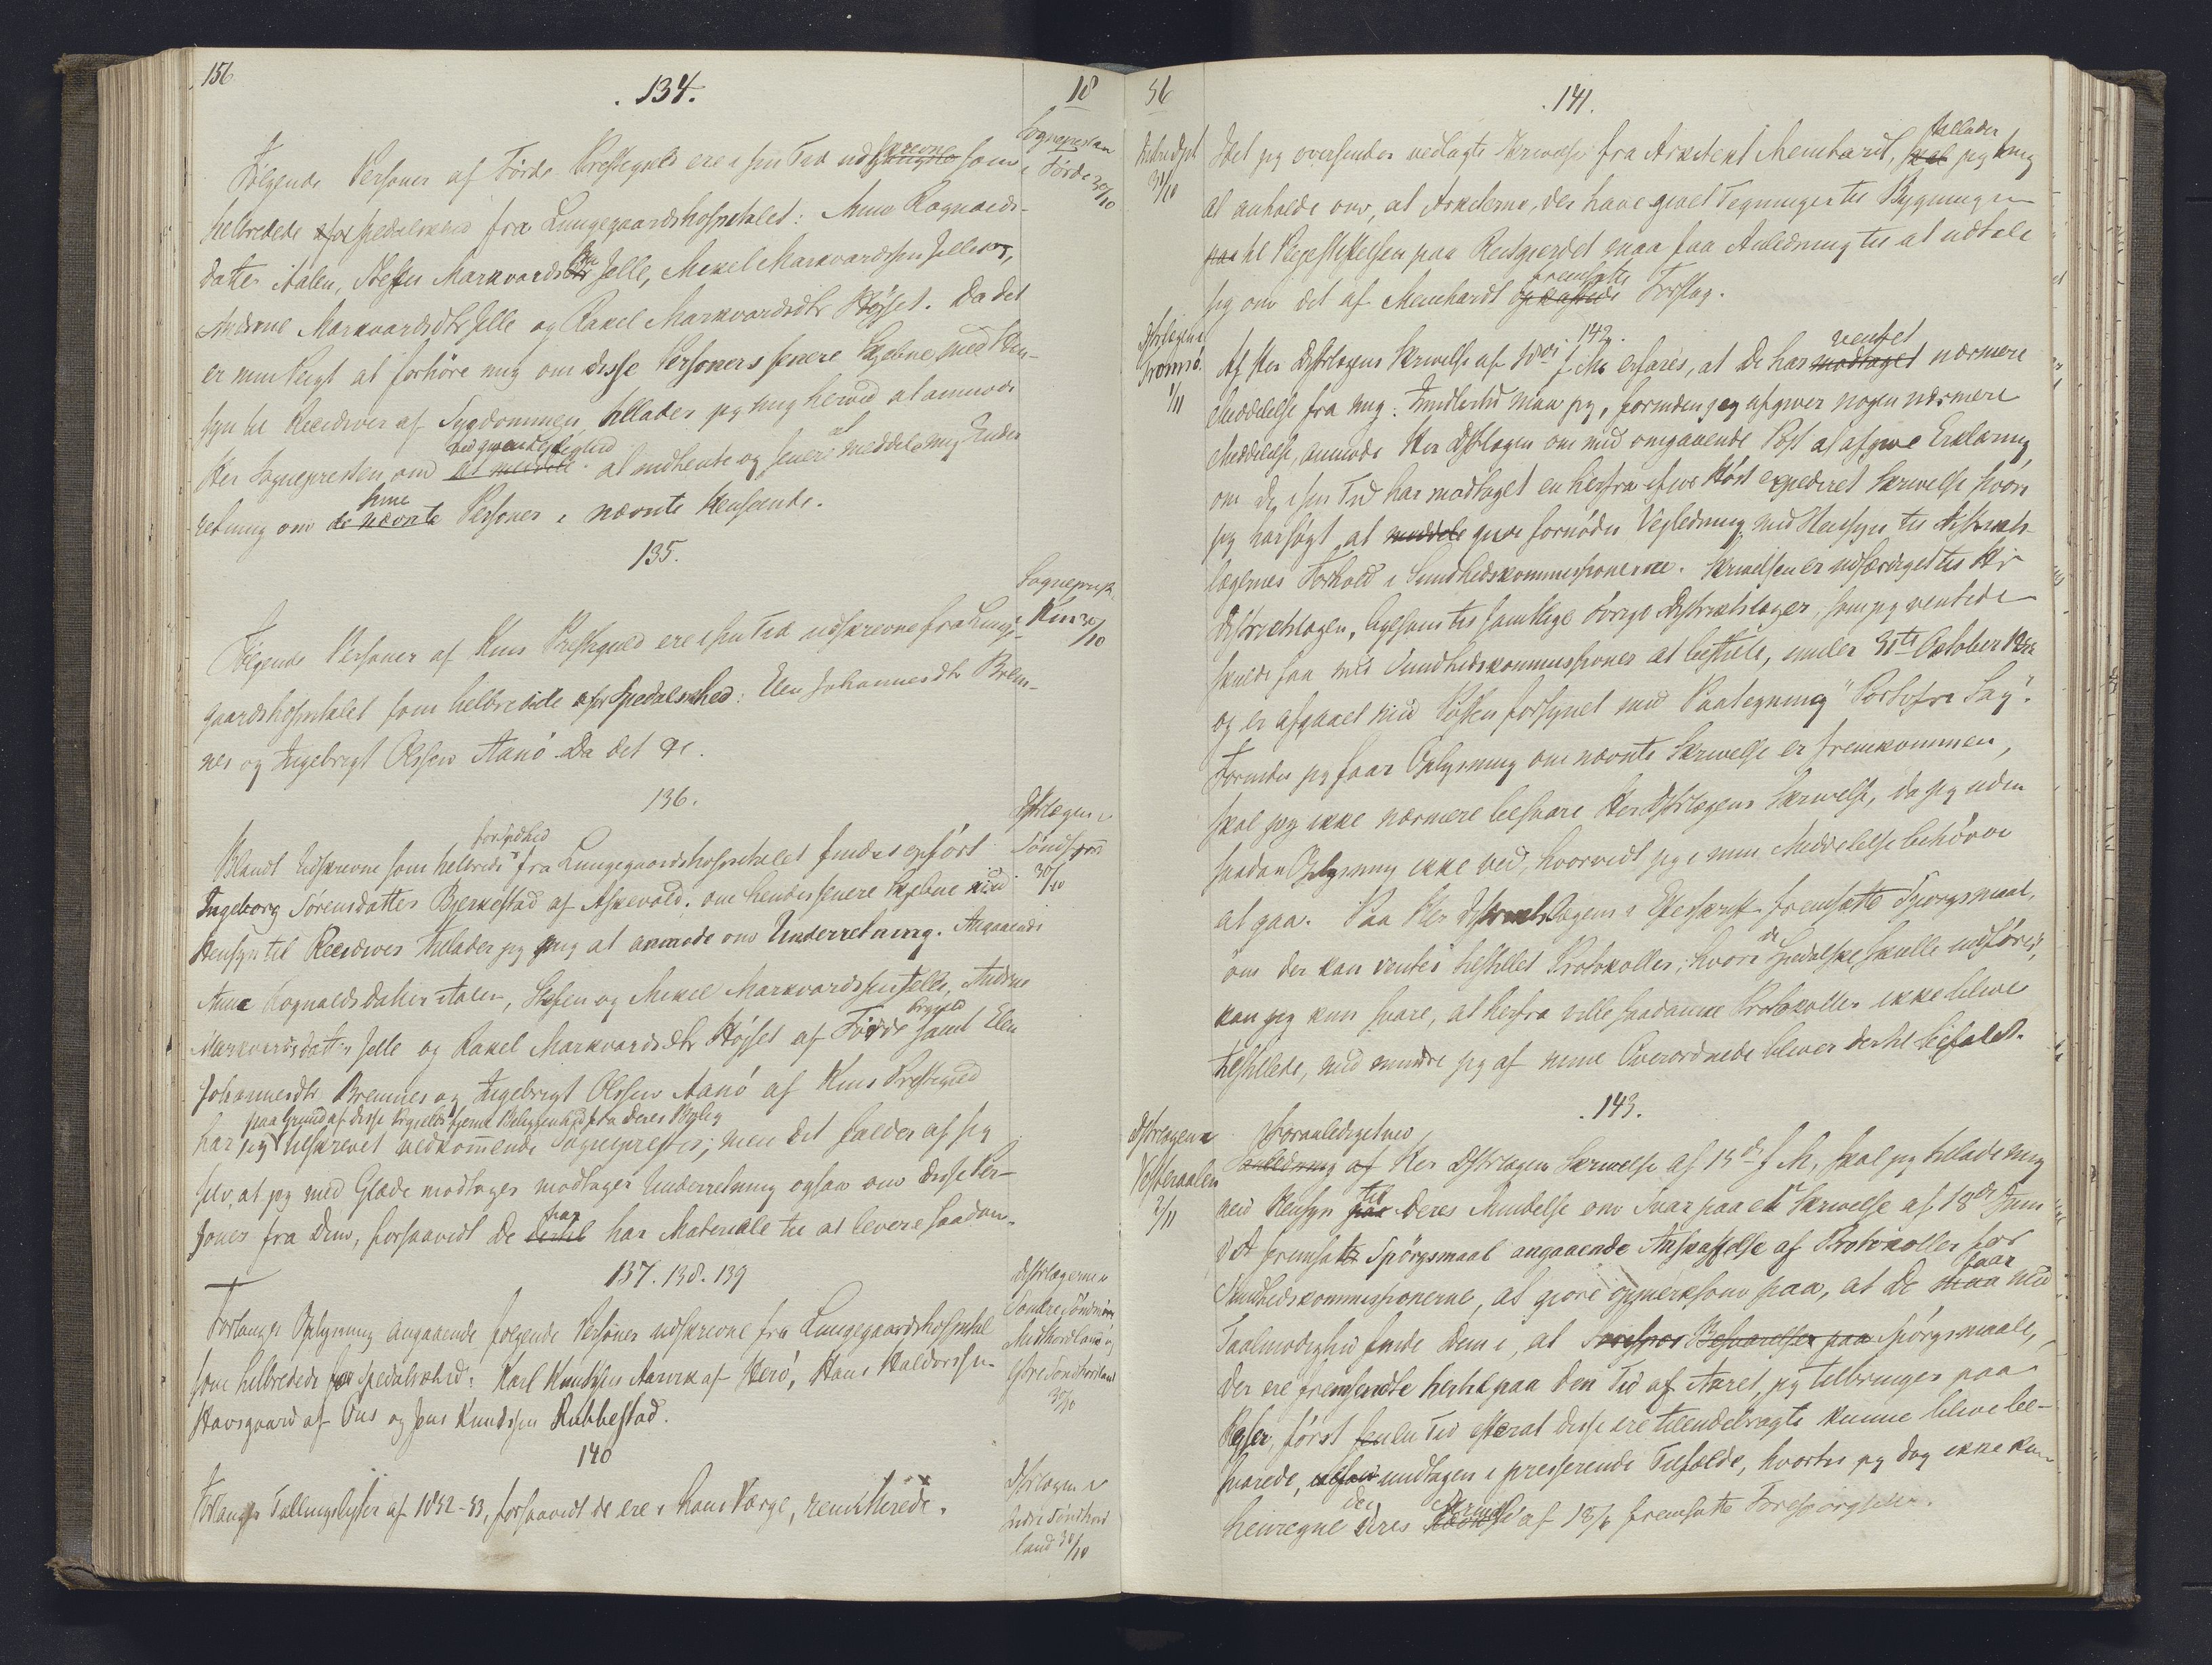 156
134.
18
Sognepresten
i Førde 30/10
Følgende Personer af Førde Prestegjeld ere i sin Tid udskrevne som
helbredede for Spedalskhed fra Lungegaardshospitalet: Anna Ragnalds-
datter Aalen, Steffen Markvardssen Jelle, Mikel Markvardssen Jelle,
Andrine Markvardsdtr Jelle og Rakel Markvardsdtr Högset. Da det
er min Pligt at forhöre mig om disse Personers senere Skjebne med Hen-
syn til Recidiver af Sygdommen, tillader jeg mig herved at anmode
ved givende Leilighed
Her Sognepresten om at meddele at indhente og senere at meddele mig Under-
hine
retning om de nævnte Personer i nævnte Henseende.
135.
Sogneprest.
i Kin 30/10
Følgende Personer af Kins Prestegjeld ere i sin Tid udskrevne fra Lunge-
gaardshospitalet som helbredede for Spedalskhed: Elen Johannesdtr Brem-
nes og Ingebrigt Olssen Aanö. Da det &c.
136.
Distrlægen i
Söndfjord
30/10
for Spdhed
Blandt Udskrevne som helbrede fra Lungegaardshospitalet findes opfört
Ingeborg Sörensdatter Bjerkestad af Askevold. Om hendes senere Skjebne med
Hensyn til Recidiver tillader jeg mig at anmode om Underretning. Angaaende
Anna Ragnaldsdatter Aalen, Steffen og Mikel Markvardssen Jelle, Andrine
Markvardsdatter Jelle og Rakel Markvardsdtr Högset af Förde Prgjeld samt Elen
Johannesdtr Bremnes og Ingebrigt Olssen Aanö af Kins Prestegjeld
paa Grund af disse Prgjelds fjerne Beliggenhed fra Deres Bolig
har jeg tilskrevet vedkommende Sogneprester; men det falder af sig
selv, at jeg med Glæde modtager modtager Underretning ogsaa om disse Per-
soner fra Dem, forsaavidt De dertil har Materiale til at levere saadan.
137. 138. 139
Distrlægerne i
Söndre Söndmör,
Midthordland og
Ytre Söndhordland
30/10
Forlanges Oplysning angaaende fölgende Personer udskrevne fra Lungegaardshospital
som helbredede for Spedalskhed: Karl Knudssen Aamrk af Herö, Hans Haldorssen
Havsgaard af Ous og Jens Knudssen Rubbestad.
140
Distrlægen i
Indre Söndhord
land 30/10
Forlanges Tællingslister af 1852-53, forsaavidt de ere i hans Værge, remitterede.
56
141.
Indredpt
31/10
tillader
Idet jeg oversender vedlagte Skrivelse fra Arkitekt Meinhardt, skal jeg mig
at anholde om, at Arkitekterne, der have givet Tegninger til Bygningen
paa til Plejestiftelsen paa Reitgjerdet maa faa Anledning til at udtale
fremsatte
sig om det af Meinhardt Forslag.
142.
Distrlægen i
Tromsö.
1/11
ventet
Af Her Distrlægens Skrivelse af 10de f. M. erfares, at De har modtaget nærmere
Meddelelse fra mig. Imidlertid maa jeg, forinden jeg afgiver nogen nærmere
Meddelelse, anmode Her Distrlægen om med omgaaende Post at afgive Erklæring,
om De i sin Tid har modtaget en herfra ifjor Höst expederet Skrivelse hvori
jeg har sögt at meddele give fornöden Vejledning med Hensyn til Distrikts-
lægernes Forhold i Sundhedskommissionerne. Skrivelsen er udfærdiget til Hr
Distriktslægen, ligesom til samtlige övrige Distriktslæger, som jeg ventede
skulde faa med Sundhedskommissioner at bestille, under 31te October 1858
og er afgaaet med Posten forsynet med Paategning "Portofri Sag".
Forinden jeg faar Oplysning om nævnte Skrivelse er fremkommen,
skal jeg ikke nærmere besvare Her Distrlægens Skrivelse, da jeg uden
saadan Oplysning ikke ved, hvorvidt jeg i min Meddelelse behöver
at gaa. Paa Her Distriktslægens i Efterskrift fremsatte Spörgsmaal,
om der kan ventes tilstillet Protokoller, hvori de Spedalske skulle indföres,
kan jeg kun svare, at herfra ville saadanne Protokoller ikke blive
tilstillede, med mindre jeg af mine Overordnede bliver dertil befalet.
143.
Distrlægen i
Vesteraalen
2/11
Foranlediget ved
Anledning af Her Distrlægens Skrivelse af 15de f. M. skal jeg tillade mig
med Hensyn til Deres Mindelse om Svar paa et i Skrivelse af 18de Juni
d. A. fremsatte Spörgsmaal angaaende Anskaffelse af Protokoller for
Sundhedskommissionerne, at gjöre opmerksom paa, at De maa faar med
Taalmodighed finde Dem i, at Besvarelser paa Spörgsmaale,
der ere fremsendte hertil paa den Tid af Aaret, jeg tilbringer paa
Rejser, först en Tid efterat disse ere tilendebragte kunne blive be-
svarede, undtagen i presserende Tilfælde, hvortil jeg dog ikke kan
henregne den i Deres Skrivelse af 18/6 fremsatte Forespörgsel.